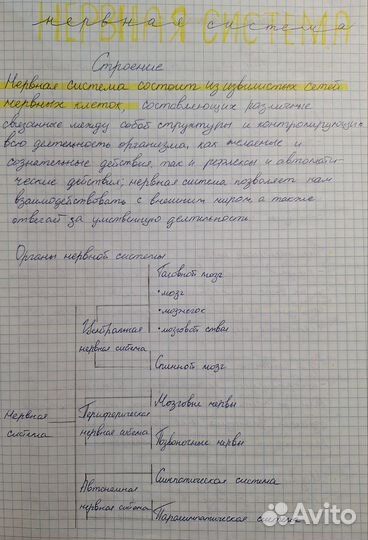 НЕРВНАЯ СИСТЕМА
нервная система
Строение
Нервная система состоит из извилистых сетей
нервных клеток, составляющих различные
связанные между собой структуры и контролирующих
всю деятельность организма, как желаемые и
сознательные действия, так и рефлексы и автомати-
ческие действия; нервная система позволяет нам
взаимодействовать с внешним миром, а также
отвечает за умственную деятельность.
Органы нервной системы
Головной мозг
•мозг
•мозжечок
•мозговой ствол
Центральная
нервная система
Спинной мозг
Нервная
система
Периферическая
нервная система
Мозговые нервы
Позвоночные нервы
Автономная
нервная система
Симпатическая система
Парасимпатическая система
Avito